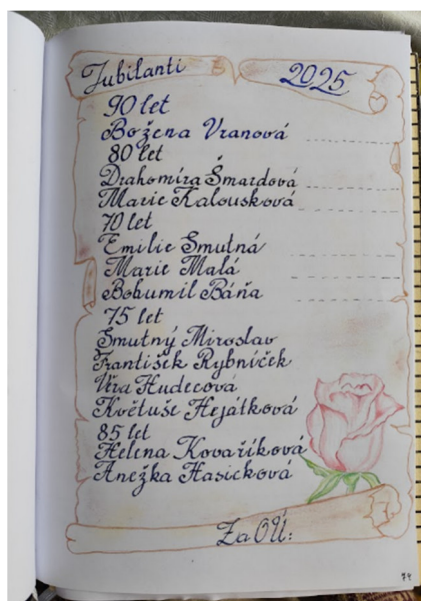 Jubilanti 2025
90 let
Božena Vranová
80 let
Drahomíra Šmardová
Marie Kalousková
70 let
Emilie Smutná
Marie Malá
Bohumil Báňa
75 let
Smutný Miroslav
František Rybníček
Věra Hudecová
Květuše Hejátková
85 let
Helena Kovaříková
Anežka Hasičková
Za OÚ:
74